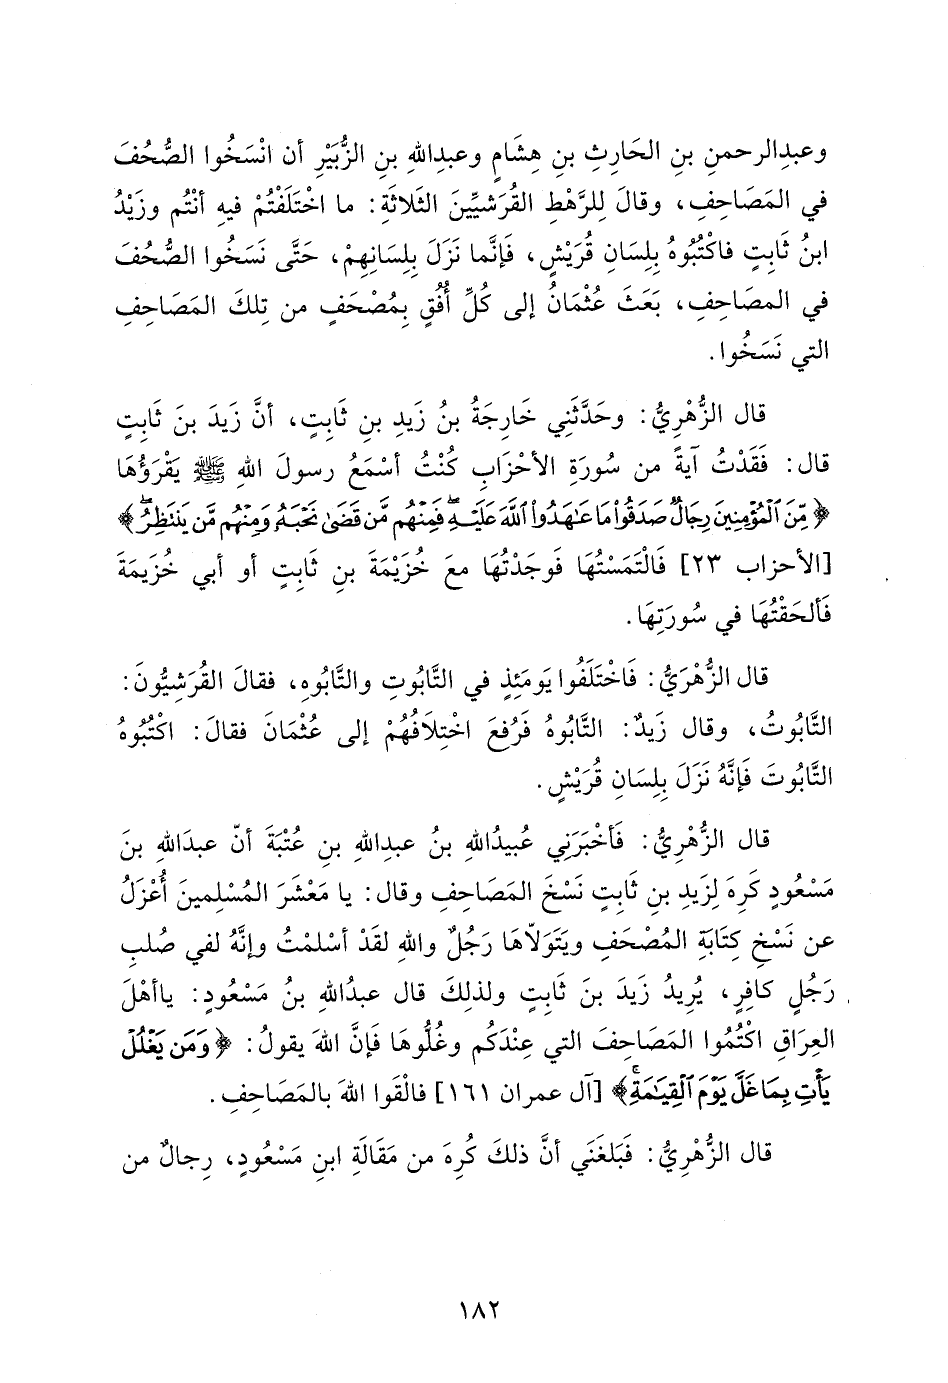 وعبدِالرحمنِ بنِ الحَارِثِ بنِ هِشَامٍ وعبدِاللهِ بنِ الزُّبَيْرِ أن انْسَخُوا الصُّحُفَ
في المَصَاحِفِ، وقالَ لِلرَّهْطِ القُرَشيِّينَ الثَلاثَةِ: ما اخْتَلَفْتُمْ فيهِ أنْتُم وزَيْدُ
ابنُ ثَابِتٍ فاكْتُبُوهُ بِلِسَانِ قُرَيْشٍ، فَإنَّما نَزَلَ بِلِسَانِهِمْ، حَتَّى نَسَخُوا الصُّحُفَ
في المصَاحِفِ، بَعَثَ عُثْمَانُ إلى كُلِّ أُفُقٍ بِمُصْحَفٍ من تِلكَ المَصَاحِفِ
التي نَسَخُوا.
قال الزُّهْرِيُّ: وحَدَّثَنِي خَارِجَةُ بنُ زَيدِ بنِ ثَابِتٍ، أنَّ زَيدَ بنَ ثَابِتٍ
قال: فَقَدْتُ آيةً من سُورَةِ الأحْزَابِ كُنْتُ أسْمَعُ رسولَ اللهِ ﷺ يَقْرَؤُهَا
﴿مِّنَ ٱلْمُؤْمِنِينَ رِجَالٌ صَدَقُواْ مَا عَٰهَدُواْ ٱللَّهَ عَلَيْهِ ۖ فَمِنْهُم مَّن قَضَىٰ نَحْبَهُۥ وَمِنْهُم مَّن يَنتَظِرُ ۖ﴾
[الأحزاب ٢٣] فَالْتَمَسْتُهَا فَوجَدْتُهَا معَ خُزَيْمَةَ بنِ ثَابِتٍ أو أبي خُزَيمَةَ
فَألحَقْتُهَا في سُورَتِهَا.
قال الزُّهْرَيُّ: فَاخْتَلَفُوا يَومَئِذٍ في التَّابُوتِ والتَّابُوهِ، فقالَ القُرَشِيُّونَ:
التَّابُوتُ، وقال زَيدٌ: التَّابُوهُ فَرُفعَ اخْتِلَافُهُمْ إلى عُثْمَانَ فقالَ: اكْتُبُوهُ
التَّابُوتَ فَإنَّهُ نَزَلَ بِلِسَانِ قُرَيْشٍ.
قال الزُّهْرِيُّ: فَأخْبَرَنِي عُبيدُاللهِ بنُ عبدِاللهِ بنِ عُتْبَةَ أنّ عبدَاللهِ بنَ
مَسْعُودٍ كَرِهَ لِزَيدِ بنِ ثَابتٍ نَسْخَ المَصَاحِفِ وقال: يا مَعْشَرَ المُسْلِمينَ أُعْزَلُ
عن نَسْخِ كِتَابَةِ المُصْحَفِ ويَتَوَلّاهَا رَجُلٌ واللهِ لقَدْ أسْلمْتُ وإنَّهُ لفي صُلبِ
رَجُلٍ كافِرٍ، يُرِيدُ زَيدَ بنَ ثَابتٍ ولذلِكَ قال عبدُاللهِ بنُ مَسْعُودٍ: ياأهْلَ
العِرَاقِ اكْتُمُوا المَصَاحِفَ التي عِنْدَكُم وغُلُّوهَا فَإنَّ اللهَ يقولُ: ﴿وَمَن يَغْلُلْ
يَأْتِ بِمَا غَلَّ يَوْمَ ٱلْقِيَٰمَةِ ۚ﴾ [آل عمران ١٦١] فالْقَوا اللهَ بالمَصَاحِفِ.
قال الزُّهْرِيُّ: فَبَلغَنَي أنَّ ذلكَ كُرِهَ من مَقَالَةِ ابنِ مَسْعُودٍ، رِجالٌ من
١٨٢